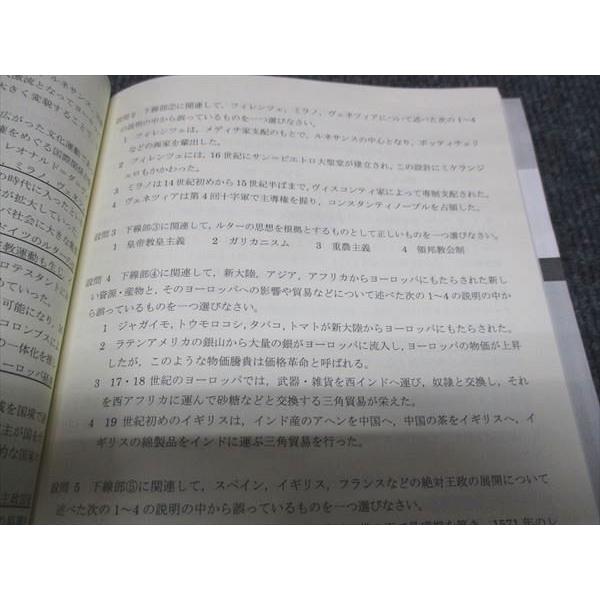 ルネサンス,
激流となってヨ
大きく変貌する
広がった文化運動で
権をめぐる国際関係
レオナルド＝ダ＝
ミラノ, ヴェネ
の時代に入った
拡大していった。
パ社会に大きな
ドイツのルター
教運動も生じ
ロテスタントに
っていた。
可能になり, 16
コロンブスに
の一体化を
ヨーロッパ
を国境で
主が国を
的な国家
主政
設問 2 下線部②に関連して, フィレンツェ, ミラノ, ヴェネツィアについて述べた次の 1～4
の説明の中から誤っているものを一つ選びなさい。
1 フィレンツェは, メディチ家支配のもとで, ルネサンスの中心となり, ボッティチェリ
などの画家を輩出した。
2 フィレンツェには, 16 世紀にサン＝ピエトロ大聖堂が建立され, この設計にミケランジ
ェロもかかわった。
3 ミラノは 14 世紀初めから 15 世紀半ばまで, ヴィスコンティ家によって専制支配された。
4 ヴェネツィアは第 4 回十字軍で主導権を握り, コンスタンティノープルを占領した。
設問 3 下線部③に関連して, ルターの思想を根拠とするものとして正しいものを一つ選びなさい。
1 皇帝教皇主義 2 ガリカニスム 3 重農主義 4 領邦教会制
設問 4 下線部④に関連して, 新大陸, アジア, アフリカからヨーロッパにもたらされた新し
い資源・産物と, そのヨーロッパへの影響や貿易などについて述べた次の 1～4 の説明の中か
ら誤っているものを一つ選びなさい。
1 ジャガイモ, トウモロコシ, タバコ, トマトが新大陸からヨーロッパにもたらされた。
2 ラテンアメリカの銀山から大量の銀がヨーロッパに流入し, ヨーロッパの物価が上昇
したが, このような物価騰貴は価格革命と呼ばれる。
3 17・18 世紀のヨーロッパでは, 武器・雑貨を西インドへ運び, 奴隷と交換し, それ
を西アフリカに運んで砂糖などと交換する三角貿易が栄えた。
4 19 世紀初めのイギリスは, インド産のアヘンを中国へ, 中国の茶をイギリスへ, イ
ギリスの綿製品をインドに運ぶ三角貿易を行った。
設問 5 下線部⑤に関連して, スペイン, イギリス, フランスなどの絶対王政の展開について
述べた次の 1～4 の説明の中から誤っているものを一つ選びなさい。
を築き, 1571 年のレ